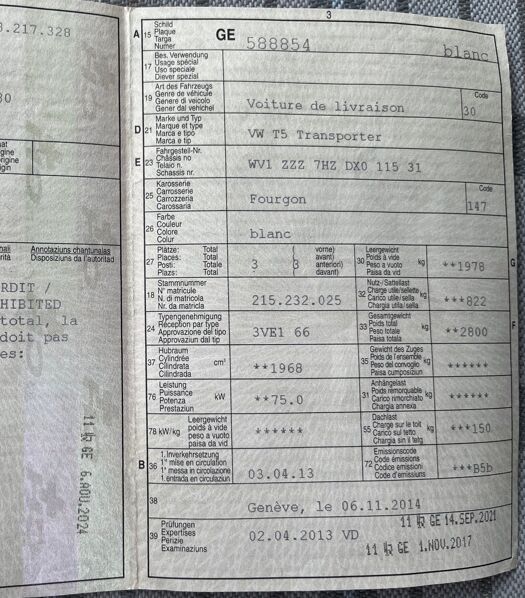 .217.328
30
Annotaziuns chantunalas
Disposiziuns da l'autoritad
RDIT /
HIBITED
total, la
doit pas
es:
11 GE 6.AOU.2024
3
A 15 Schild
Plaque
Targa
Numer
GE 588854 blanc
17 Bes. Verwendung
Usage spécial
Uso speciale
Diever spezial
19 Art des Fahrzeugs
Genre de véhicule
Genere di veicolo
Gener dal vehichel
Voiture de livraison
Code
30
D 21 Marke und Typ
Marque et type
Marca e tipo
Marca e tip
VW T5 Transporter
E 23 Fahrgestell-Nr.
Châssis no
Telaio n.
Schassis nr.
WV1 ZZZ 7HZ DX0 115 31
25 Karosserie
Carrosserie
Carrozzeria
Carossaria
Fourgon
Code
147
26 Farbe
Couleur
Colore
Colur
blanc
27 Plätze: Total
Places: Total
Posti: Totale
Plazs: Total
vorne)
avant)
anteriori)
davant)
3 ( 3
30 Leergewicht
Poids à vide
Peso a vuoto
Paisa da vid
kg
**1978
G
18 Stammnummer
N° matricule
N. di matricola
Nr. da matricla
215.232.025
32 Nutz-/Sattellast
Charge utile/sellette
Carico utile/sella
Chargia utila/sella
kg
***822
24 Typengenehmigung
Réception par type
Approvazione del tipo
Approvaziun dal tip
3VE1 66
33 Gesamtgewicht
Poids total
Peso totale
Paisa totala
kg
**2800
F
37 Hubraum
Cylindrée
Cilindrata
Cilindrada
cm³
**1968
35 Gewicht des Zuges
Poids de l'ensemble
Peso del convoglio
Paisa cumposiziun
kg
******
76 Leistung
Puissance
Potenza
Prestaziun
kW
**75.0
31 Anhängelast
Poids remorquable
Carico rimorchiato
Chargia annexa
kg
******
78 kW/kg
Leergewicht
poids à vide
peso a vuoto
paisa da vid
******
55 Dachlast
Charge sur le toit
Carico sul tetto
Chargia sin il tetg
kg
***150
B 36 1. Inverkehrsetzung
1re mise en circulation
1a messa in circolazione
1. entrada en circulaziun
03.04.13
72 Emissionscode
Code émissions
Codice emissioni
Code d'emissiuns
***B5b
38
Genève, le 06.11.2014
39 Prüfungen
Expertises
Perizie
Examinaziuns
02.04.2013 VD
11 GE 14.SEP.2021
11 GE 1.NOV.2017